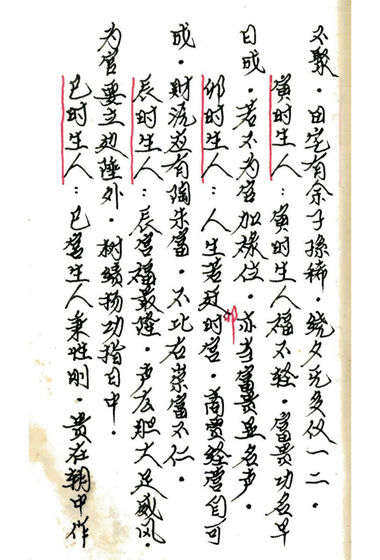 不聚．田宅有余子孫稀．多仅一二．
寅时生人：寅时生人福不轻．富贵功名早
日成．若不为官加禄位．亦当富贵显名声．
卯时生人：人生若卯时营．商贾经营自可
成．财流应有陶朱富．不比石崇富不仁．
辰时生人：辰宫福敦隆．声宏胆大足威风．
为官要立边陲外．树绩扬功指日中．
巳时生人：巳宫生人秉性刚．贵在朝中作